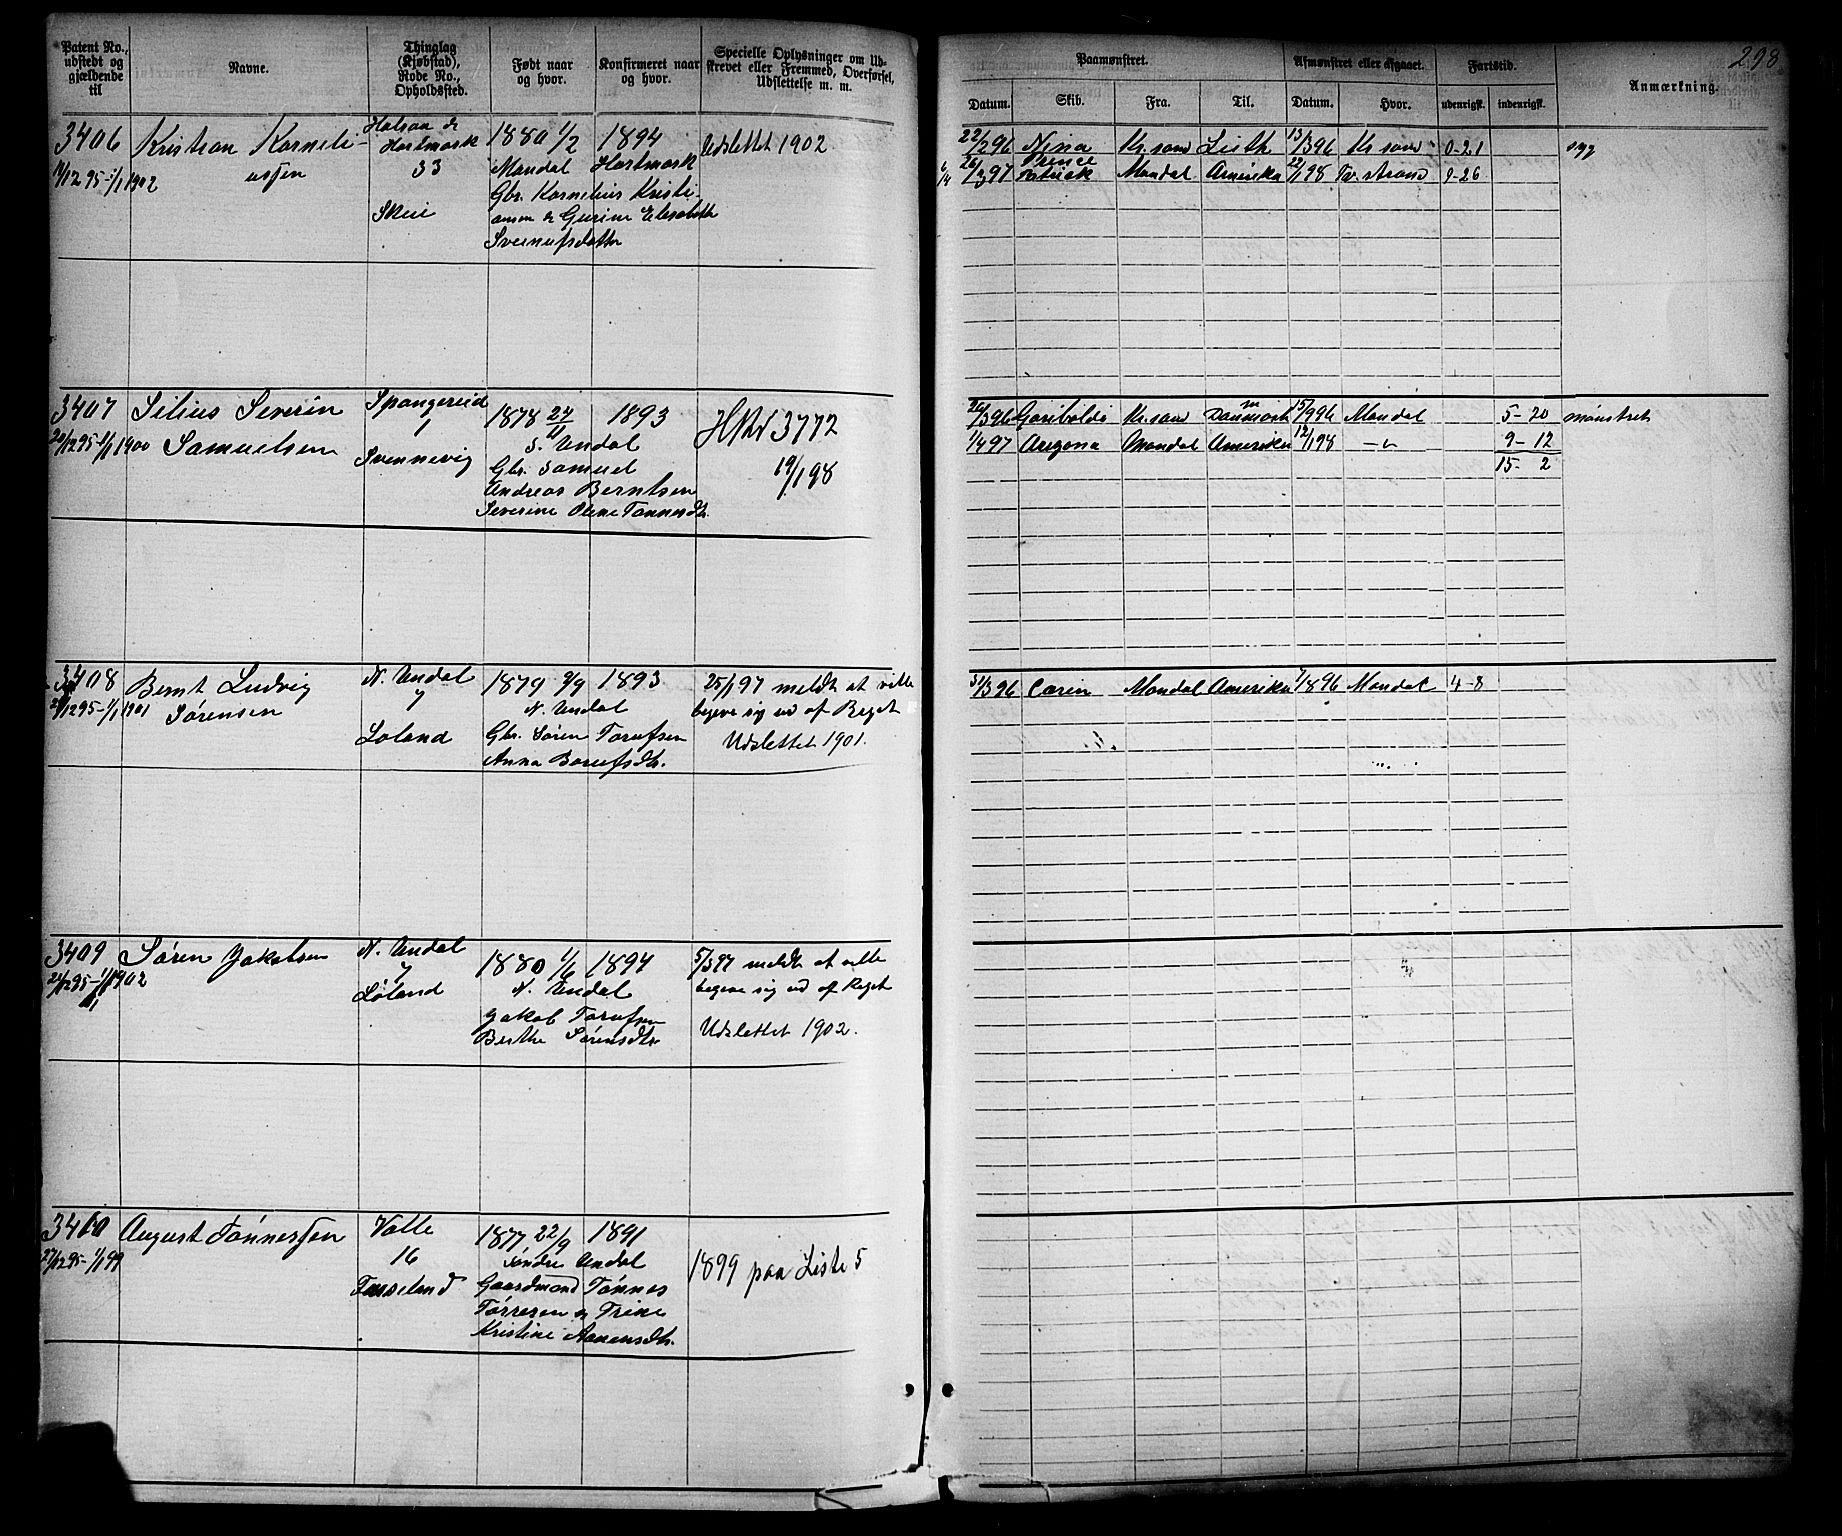 298
Patent No., udstedt og gjældende til
Navne.
Thinglag (Kjøbstad), Rode No., Opholdssted.
Født naar og hvor.
Konfirmeret naar og hvor.
Specielle Oplysninger om Udskrevet eller Fremmed, Overførsel, Udslettelse m. m.
Paamønstret.
Afmønstret eller afgaaet.
Fartstid.
Anmærkning.
Datum. Skib. Fra. Til. Datum. Hvor. udenrigsk. indenrigsk.
3406 Kristian Korneli-
ussen
11/12 95-1/1 1902
Halsaa &
Hartmark
33
Skeie
1880 1/2 1894
Mandal Hartmark
Gbr. Kornelius Kristi-
ansen & Gurine Elisabeth
Svennufsdatter
Udslettet 1902
22/2 96 Nina Kr.sand Listh 13/3 96 Kr sand 0-21 syg
26/3 97 Prince Patrick Mandal Amerika 22/1 98 Tv. strand 9-26
3407 Silius Severin
20/12 95-1/1 1900 Samuelsen
Spangereid
1
Svennevig
1878 24/11 1893
S. Undal
Gbr. Samuel
Andreas Berntsen
Severine Oline Tønnesdtr.
HRv 3772
19/1 98
20/3 96 Garibaldi Kr.sand Danmark 15/9 96 Mandal 5-20 mønstret
1/4 97 Arizona Mandal Amerika 12/1 98 -"- 9-12
15-2
3408 Bernt Ludvig
21/12 95-1/1 1901 Sørensen
N. Undal
7
Loland
1879 9/9 1893
N. Undal
Gbr. Søren Torufsen
Anna Borufsdtr.
25/1 97 meldt at ville
begive sig ud af Riget
Udslettet 1901.
31/3 96 Carin Mandal Amerika 7/8 96 Mandal 4-8
3409 Søren Jakobsen
21/12 95-1/1 1902
N. Undal
7
Loland
1880 1/6 1894
N. Undal
Jakob Torufsen
Berthe Sørensdtr
5/3 97 meldt at ville
begive sig ud af Riget
Udslettet 1902.
3410 August Tønnessen
27/12 95-1/1 99
Valle
16
Fasseland
1877 22/9 1891
Søndre Undal
Gaardmand Tønnes
Tørresen og Trine
Kristine Aanensdtr.
1899 paa Liste 5